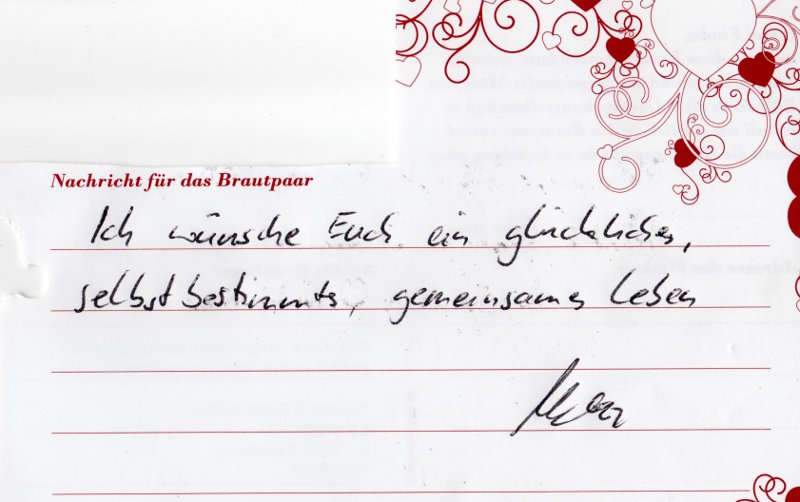 Nachricht für das Brautpaar
Ich wünsche Euch ein glückliches,
selbstbestimmtes, gemeinsames Leben